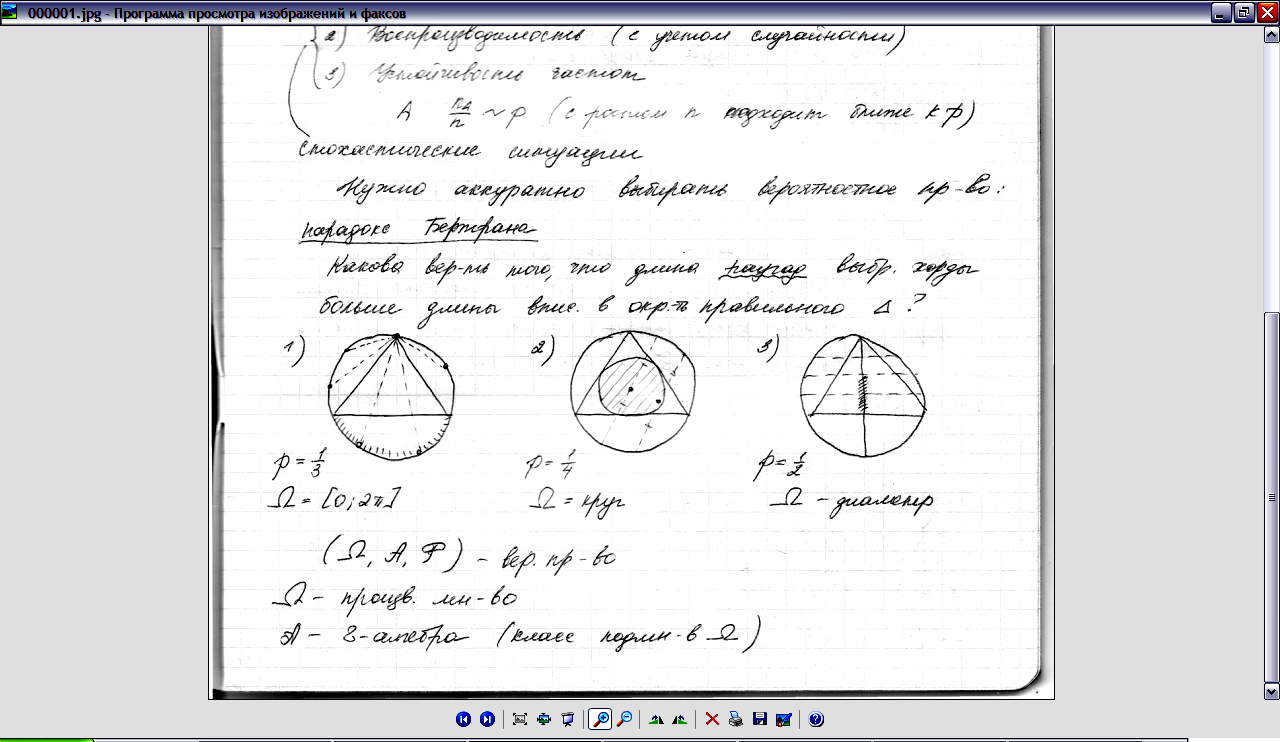 000001.jpg - Программа просмотра изображений и факсов
2) Воспроизводимость (с учетом случайности)
3) Устойчивость частот
A n_A/n ~ p (с ростом n подходит ближе к p)
стохастические ситуации
Нужно аккуратно выбирать вероятностное пр-во:
парадокс Бертрана
Какова вер-ть того, что длина наугад выбр. хорды
больше длины впис. в окр-ть правильного Δ ?
1) 2) 3)
p = 1/3 p = 1/4 p = 1/2
Ω = [0; 2π] Ω = круг Ω - диаметр
(Ω, A, P) - вер. пр-во
Ω - произв. мн-во
A - σ-алгебра (класс подмн-в Ω)